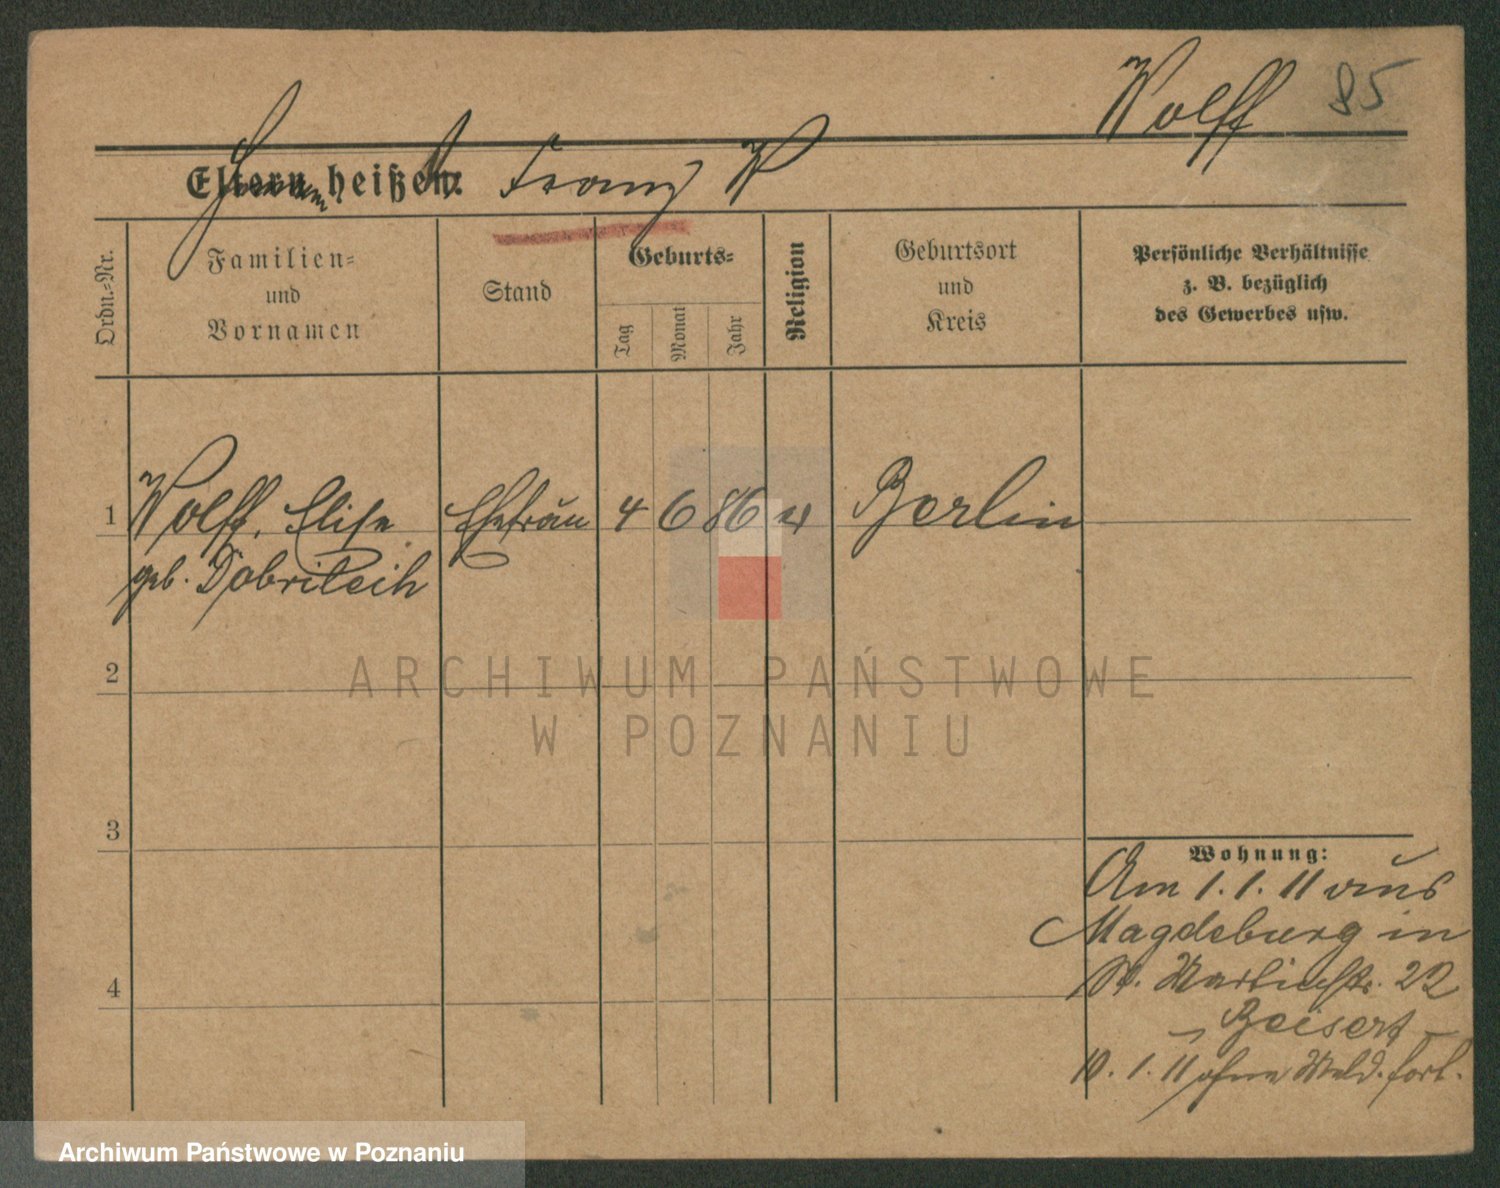 Wolff 85
Eltern heißen: Franz W
Ordn.=Nr.
Familien=
und
Vornamen
Stand
Geburts=
Tag
Monat
Jahr
Religion
Geburtsort
und
Kreis
Persönliche Verhältnisse
z. B. bezüglich
des Gewerbes usw.
1 Wolff, Elise Ehefrau 4 6 86 Berlin
geb. Dobritsch
2
3
4
Wohnung:
Am 1. 1. 11 aus
Magdeburg in
St. Martinstr. 22
Beisert
10. 1. 11 ohne Meld. fort.
ARCHIWUM PAŃSTWOWE
W POZNANIU
Archiwum Państwowe w Poznaniu